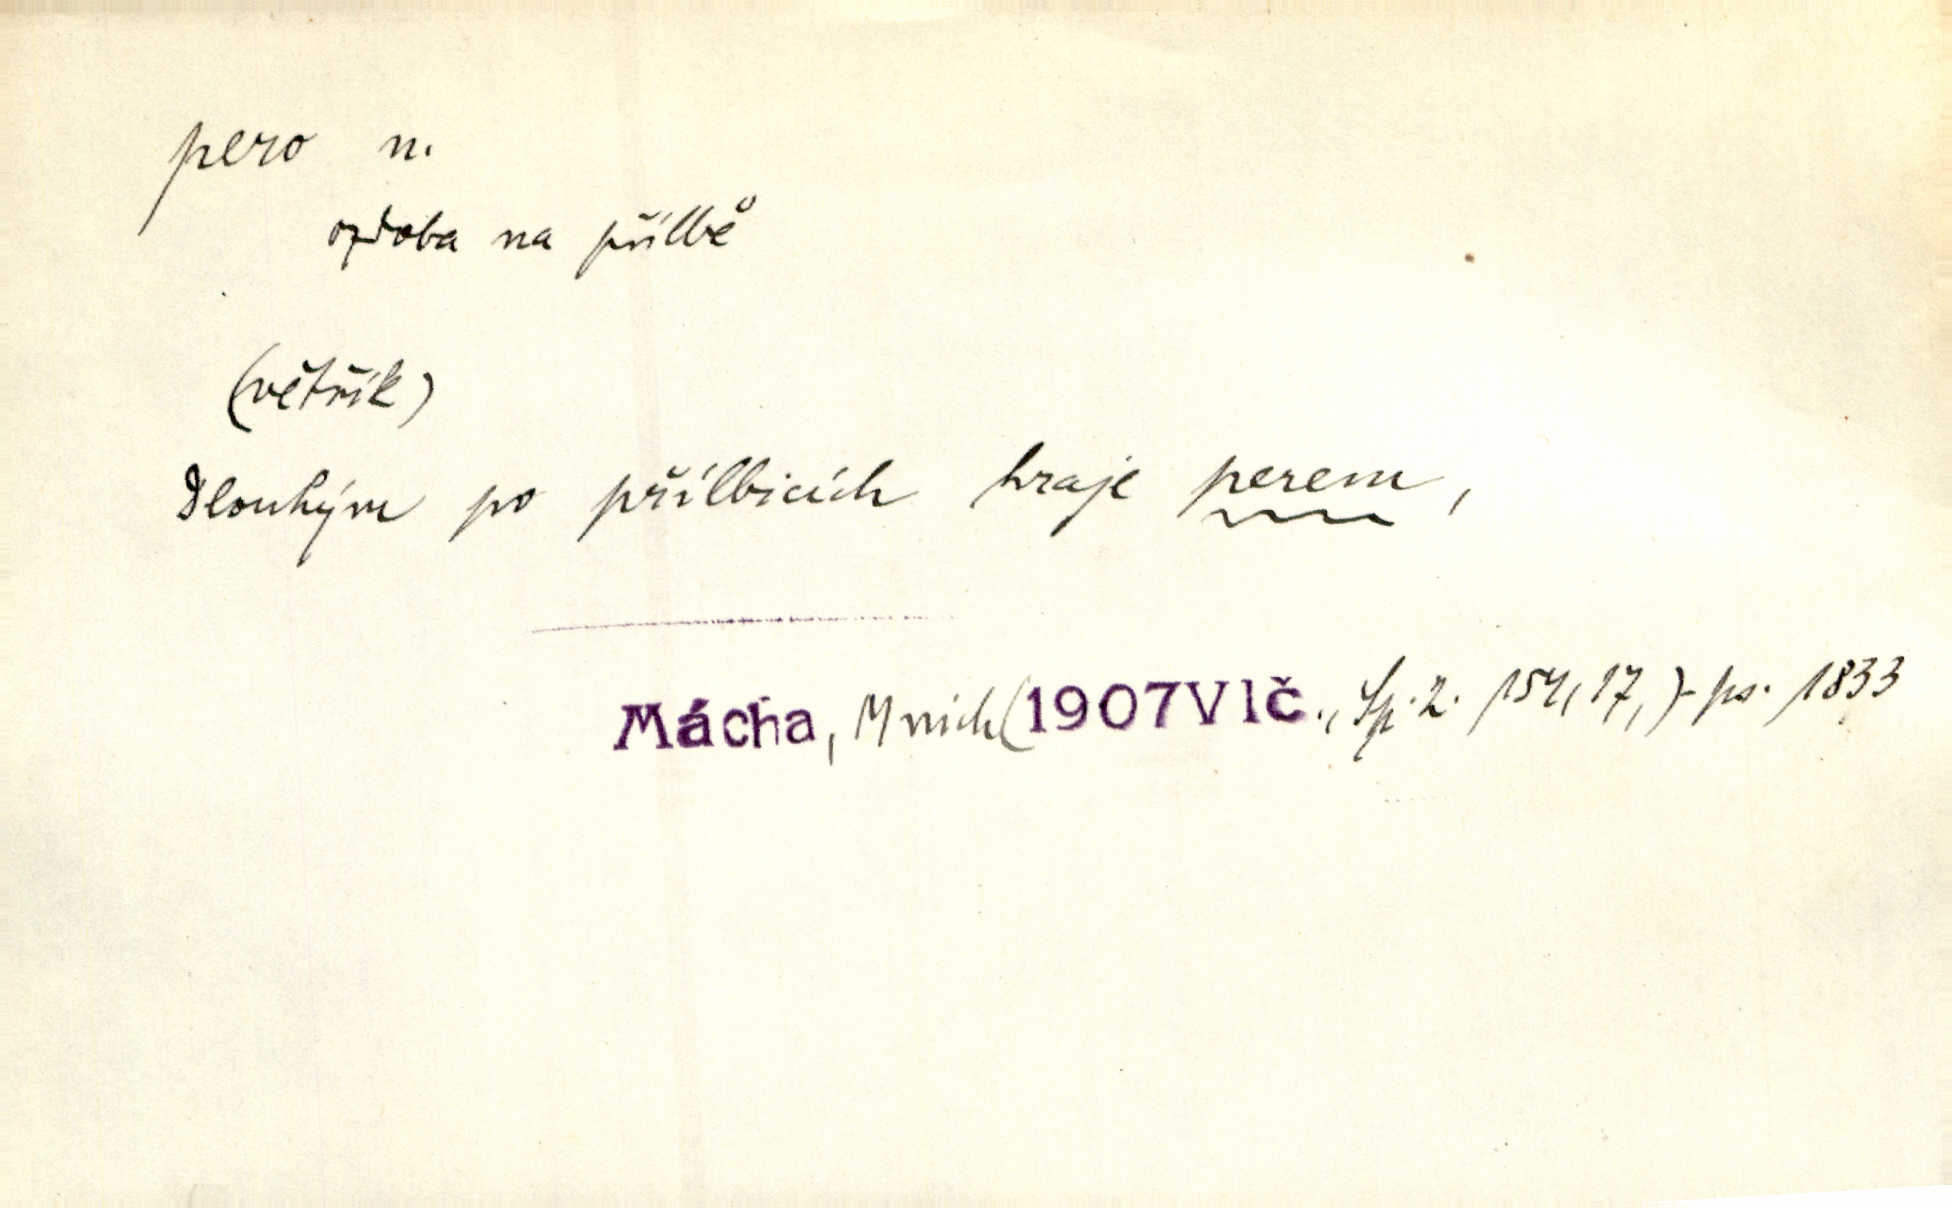 pero n.
ozdoba na přílbě
(větřík)
Dlouhým po přílbicích hraje perem,
Mácha, Mnich (1907 Vlč., Sp. 2. 154, 17,) - ps. 1833